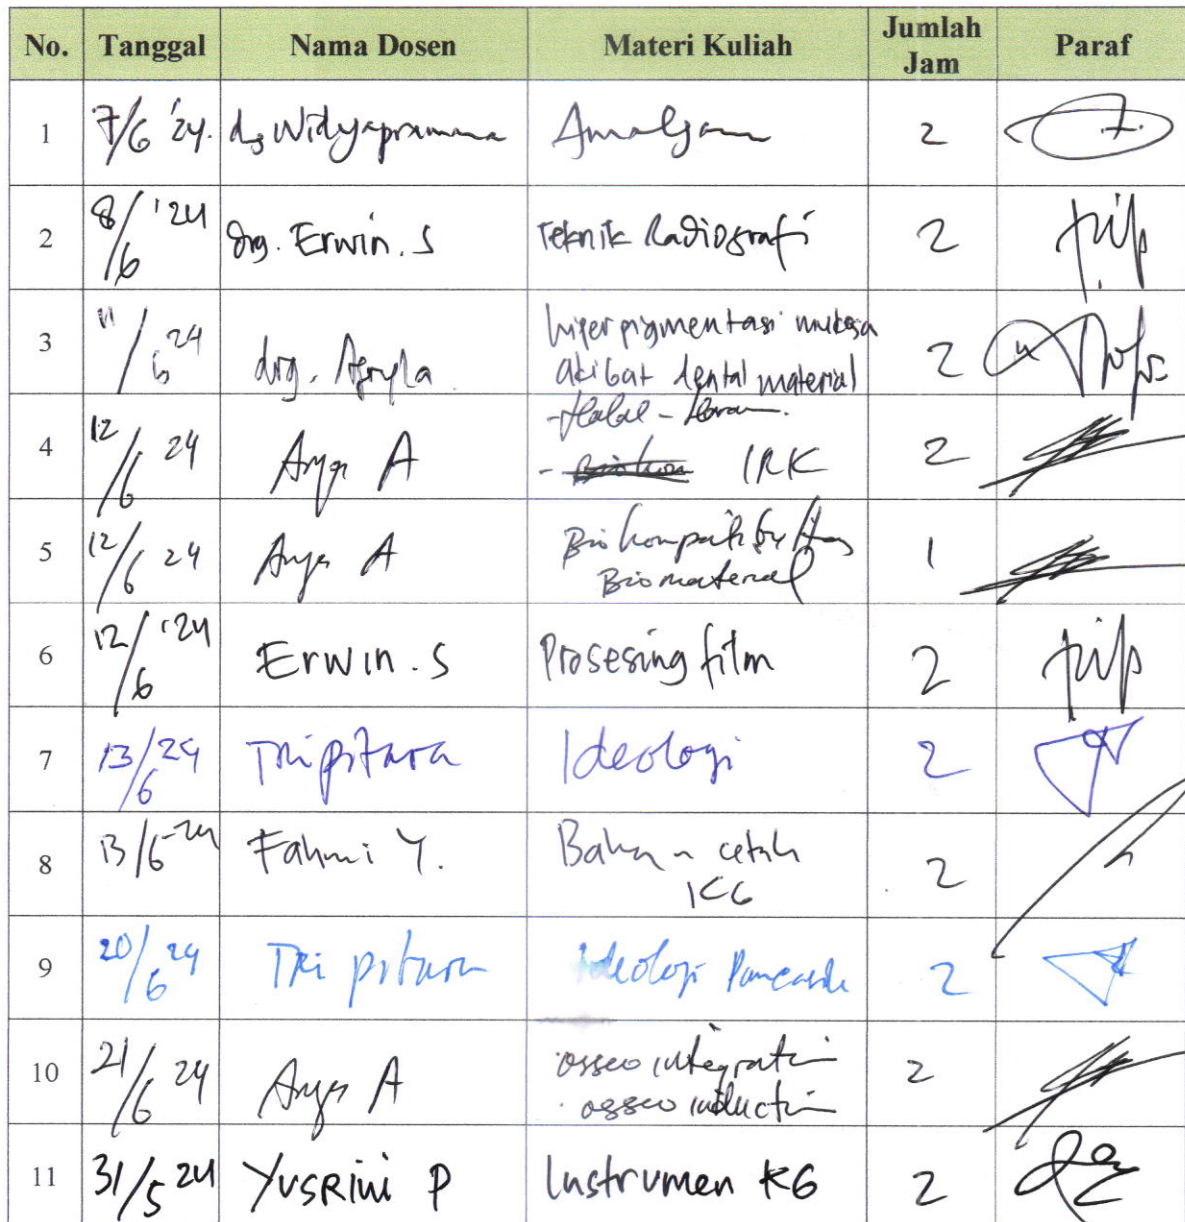 No. Tanggal Nama Dosen Materi Kuliah Jumlah Jam Paraf
1 7/6 '24. drg Widyapramana Amalgam 2
2 8/6 '24 drg. Erwin. S Teknik Radiografi 2
3 11/6 24 drg. hiperpigmentasi mukosa 2
akibat dental material
4 12/6 24 Arya A - Halal - Haram. 2
- IRK
5 12/6 24 Arya A Biokompatibilitas 1
Biomaterial
6 12/6 '24 Erwin. S Prosesing film 2
7 13/6 24 Tri pitara Ideologi 2
8 13/6-24 Fahmi Y. Bahan cetak 2
KG
9 20/6 24 Tri pitara Ideologi Pancasila 2
10 21/6 24 Arya A osseo integration 2
osseo induction
11 31/5 24 Yusrini P Instrumen KG 2